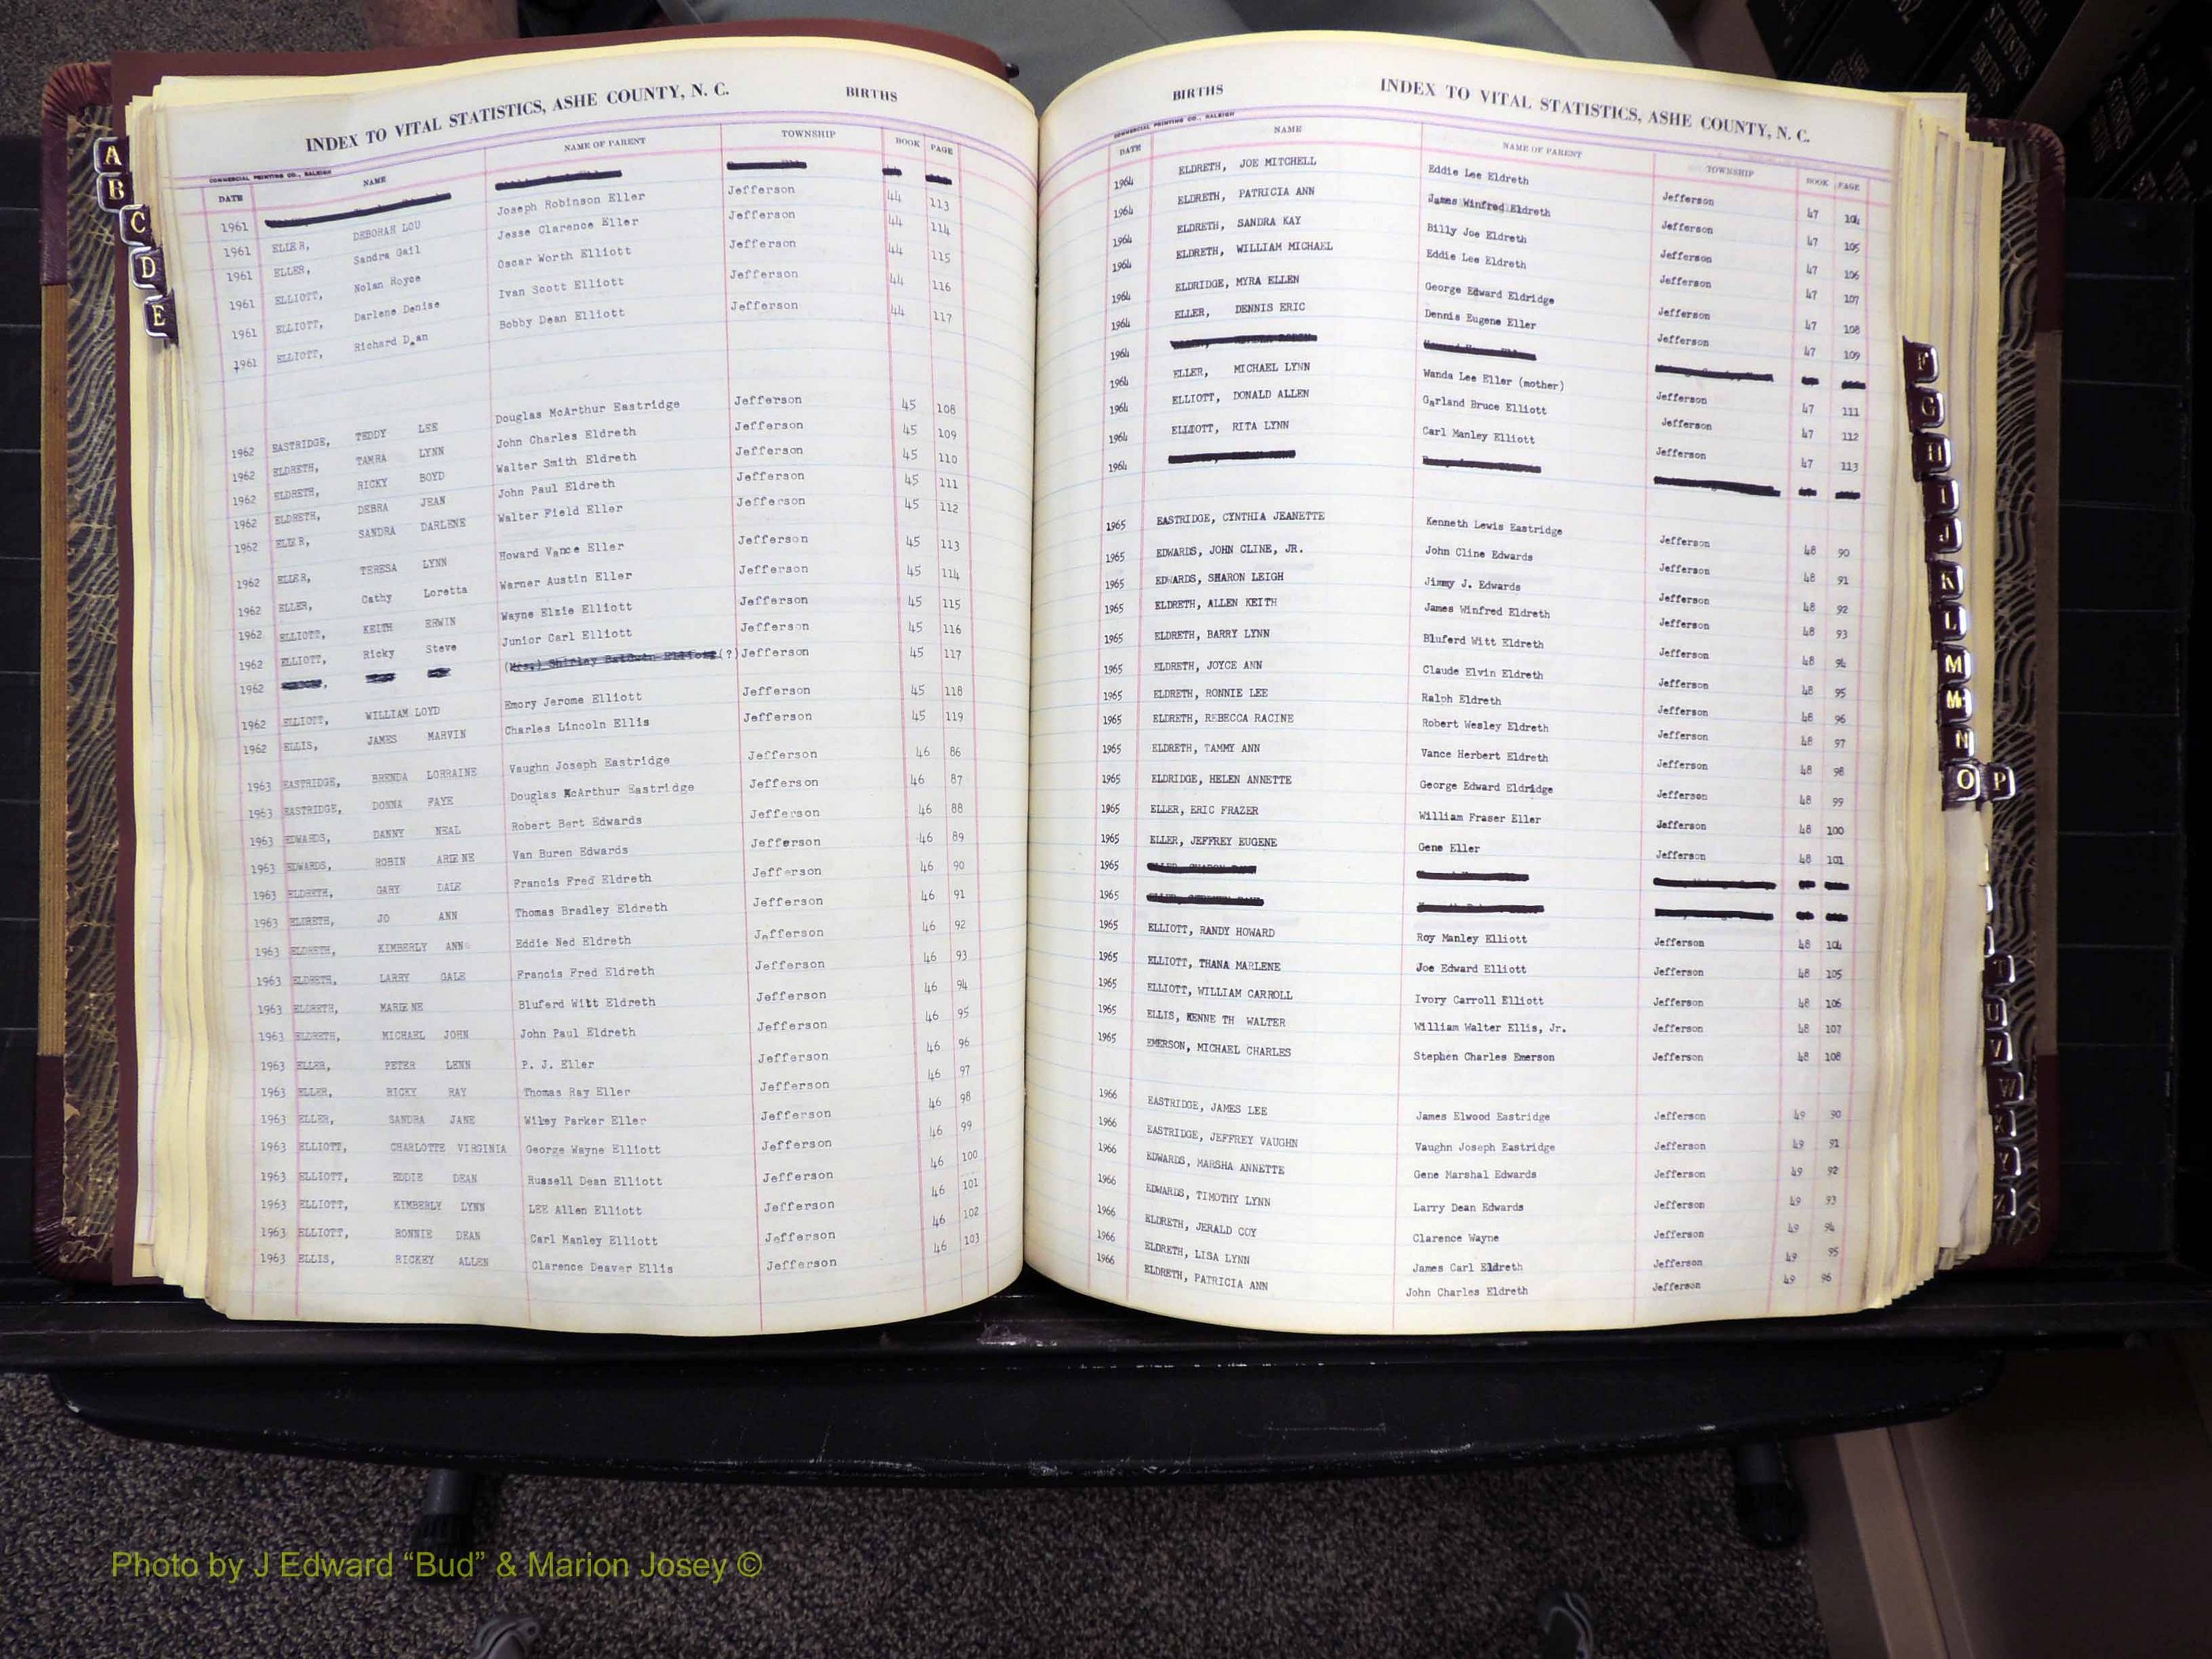 INDEX TO VITAL STATISTICS, ASHE COUNTY, N. C. BIRTHS
COMMERCIAL PRINTING CO., RALEIGH
DATE NAME NAME OF PARENT TOWNSHIP BOOK PAGE
1961
1961 ELLER, DEBORAH LOU Joseph Robinson Eller Jefferson 44 113
1961 ELLER, Sandra Gail Jesse Clarence Eller Jefferson 44 114
1961 ELLIOTT, Nolan Royce Oscar Worth Elliott Jefferson 44 115
1961 ELLIOTT, Darlene Denise Ivan Scott Elliott Jefferson 44 116
1961 ELLIOTT, Richard Dean Bobby Dean Elliott Jefferson 44 117
1962 EASTRIDGE, TEDDY LEE Douglas McArthur Eastridge Jefferson 45 108
1962 ELDRETH, TAMRA LYNN John Charles Eldreth Jefferson 45 109
1962 ELDRETH, RICKY BOYD Walter Smith Eldreth Jefferson 45 110
1962 ELDRETH, DEBRA JEAN John Paul Eldreth Jefferson 45 111
1962 ELLER, SANDRA DARLENE Walter Field Eller Jefferson 45 112
1962 ELLER, TERESA LYNN Howard Vance Eller Jefferson 45 113
1962 ELLER, Cathy Loretta Warner Austin Eller Jefferson 45 114
1962 ELLIOTT, KEITH ERWIN Wayne Elzie Elliott Jefferson 45 115
1962 ELLIOTT, Ricky Steve Junior Carl Elliott Jefferson 45 116
1962 (Mrs.) Shirley Baldwin Elliott (?) Jefferson 45 117
1962 ELLIOTT, WILLIAM LOYD Emory Jerome Elliott Jefferson 45 118
1962 ELLIS, JAMES MARVIN Charles Lincoln Ellis Jefferson 45 119
1963 EASTRIDGE, BRENDA LORRAINE Vaughn Joseph Eastridge Jefferson 46 86
1963 EASTRIDGE, DONNA FAYE Douglas McArthur Eastridge Jefferson 46 87
1963 EDWARDS, DANNY NEAL Robert Bert Edwards Jefferson 46 88
1963 EDWARDS, ROBIN ARLENE Van Buren Edwards Jefferson 46 89
1963 ELDRETH, GARY DALE Francis Fred Eldreth Jefferson 46 90
1963 ELDRETH, JO ANN Thomas Bradley Eldreth Jefferson 46 91
1963 ELDRETH, KIMBERLY ANN Eddie Ned Eldreth Jefferson 46 92
1963 ELDRETH, LARRY GALE Francis Fred Eldreth Jefferson 46 93
1963 ELDRETH, MARIENE Bluferd Witt Eldreth Jefferson 46 94
1963 ELDRETH, MICHAEL JOHN John Paul Eldreth Jefferson 46 95
1963 ELLER, PETER LENN P. J. Eller Jefferson 46 96
1963 ELLER, RICKY RAY Thomas Ray Eller Jefferson 46 97
1963 ELLER, SANDRA JANE Wiley Parker Eller Jefferson 46 98
1963 ELLIOTT, CHARLOTTE VIRGINIA George Wayne Elliott Jefferson 46 99
1963 ELLIOTT, EDDIE DEAN Russell Dean Elliott Jefferson 46 100
1963 ELLIOTT, KIMBERLY LYNN LEE Allen Elliott Jefferson 46 101
1963 ELLIOTT, RONNIE DEAN Carl Manley Elliott Jefferson 46 102
1963 ELLIS, RICKEY ALLEN Clarence Deaver Ellis Jefferson 46 103
BIRTHS INDEX TO VITAL STATISTICS, ASHE COUNTY, N. C.
COMMERCIAL PRINTING CO., RALEIGH
DATE NAME NAME OF PARENT TOWNSHIP BOOK PAGE
1964 ELDRETH, JOE MITCHELL Eddie Lee Eldreth Jefferson 47 104
1964 ELDRETH, PATRICIA ANN James Winfred Eldreth Jefferson 47 105
1964 ELDRETH, SANDRA KAY Billy Joe Eldreth Jefferson 47 106
1964 ELDRETH, WILLIAM MICHAEL Eddie Lee Eldreth Jefferson 47 107
1964 ELDRIDGE, MYRA ELLEN George Edward Eldridge Jefferson 47 108
1964 ELLER, DENNIS ERIC Dennis Eugene Eller Jefferson 47 109
1964
1964 ELLER, MICHAEL LYNN Wanda Lee Eller (mother) Jefferson 47 111
1964 ELLIOTT, DONALD ALLEN Garland Bruce Elliott Jefferson 47 112
1964 ELLIOTT, RITA LYNN Carl Manley Elliott Jefferson 47 113
1964
1965 EASTRIDGE, CYNTHIA JEANETTE Kenneth Lewis Eastridge Jefferson 48 90
1965 EDWARDS, JOHN CLINE, JR. John Cline Edwards Jefferson 48 91
1965 EDWARDS, SHARON LEIGH Jimmy J. Edwards Jefferson 48 92
1965 ELDRETH, ALLEN KEITH James Winfred Eldreth Jefferson 48 93
1965 ELDRETH, BARRY LYNN Bluferd Witt Eldreth Jefferson 48 94
1965 ELDRETH, JOYCE ANN Claude Elvin Eldreth Jefferson 48 95
1965 ELDRETH, RONNIE LEE Ralph Eldreth Jefferson 48 96
1965 ELDRETH, REBECCA RACINE Robert Wesley Eldreth Jefferson 48 97
1965 ELDRETH, TAMMY ANN Vance Herbert Eldreth Jefferson 48 98
1965 ELDRIDGE, HELEN ANNETTE George Edward Eldridge Jefferson 48 99
1965 ELLER, ERIC FRAZER William Fraser Eller Jefferson 48 100
1965 ELLER, JEFFREY EUGENE Gene Eller Jefferson 48 101
1965
1965
1965 ELLIOTT, RANDY HOWARD Roy Manley Elliott Jefferson 48 104
1965 ELLIOTT, THANA MARLENE Joe Edward Elliott Jefferson 48 105
1965 ELLIOTT, WILLIAM CARROLL Ivory Carroll Elliott Jefferson 48 106
1965 ELLIS, KENNE TH WALTER William Walter Ellis, Jr. Jefferson 48 107
1965 EMERSON, MICHAEL CHARLES Stephen Charles Emerson Jefferson 48 108
1966 EASTRIDGE, JAMES LEE James Elwood Eastridge Jefferson 49 90
1966 EASTRIDGE, JEFFREY VAUGHN Vaughn Joseph Eastridge Jefferson 49 91
1966 EDWARDS, MARSHA ANNETTE Gene Marshal Edwards Jefferson 49 92
1966 EDWARDS, TIMOTHY LYNN Larry Dean Edwards Jefferson 49 93
1966 ELDRETH, JERALD COY Clarence Wayne Jefferson 49 94
1966 ELDRETH, LISA LYNN James Carl Eldreth Jefferson 49 95
1966 ELDRETH, PATRICIA ANN John Charles Eldreth Jefferson 49 96
A
B
C
D
E
F
G
H
I
J
K
L
M
Mc
N
O P
T
U
V
W
X
Y
Photo by J Edward “Bud” & Marion Josey ©